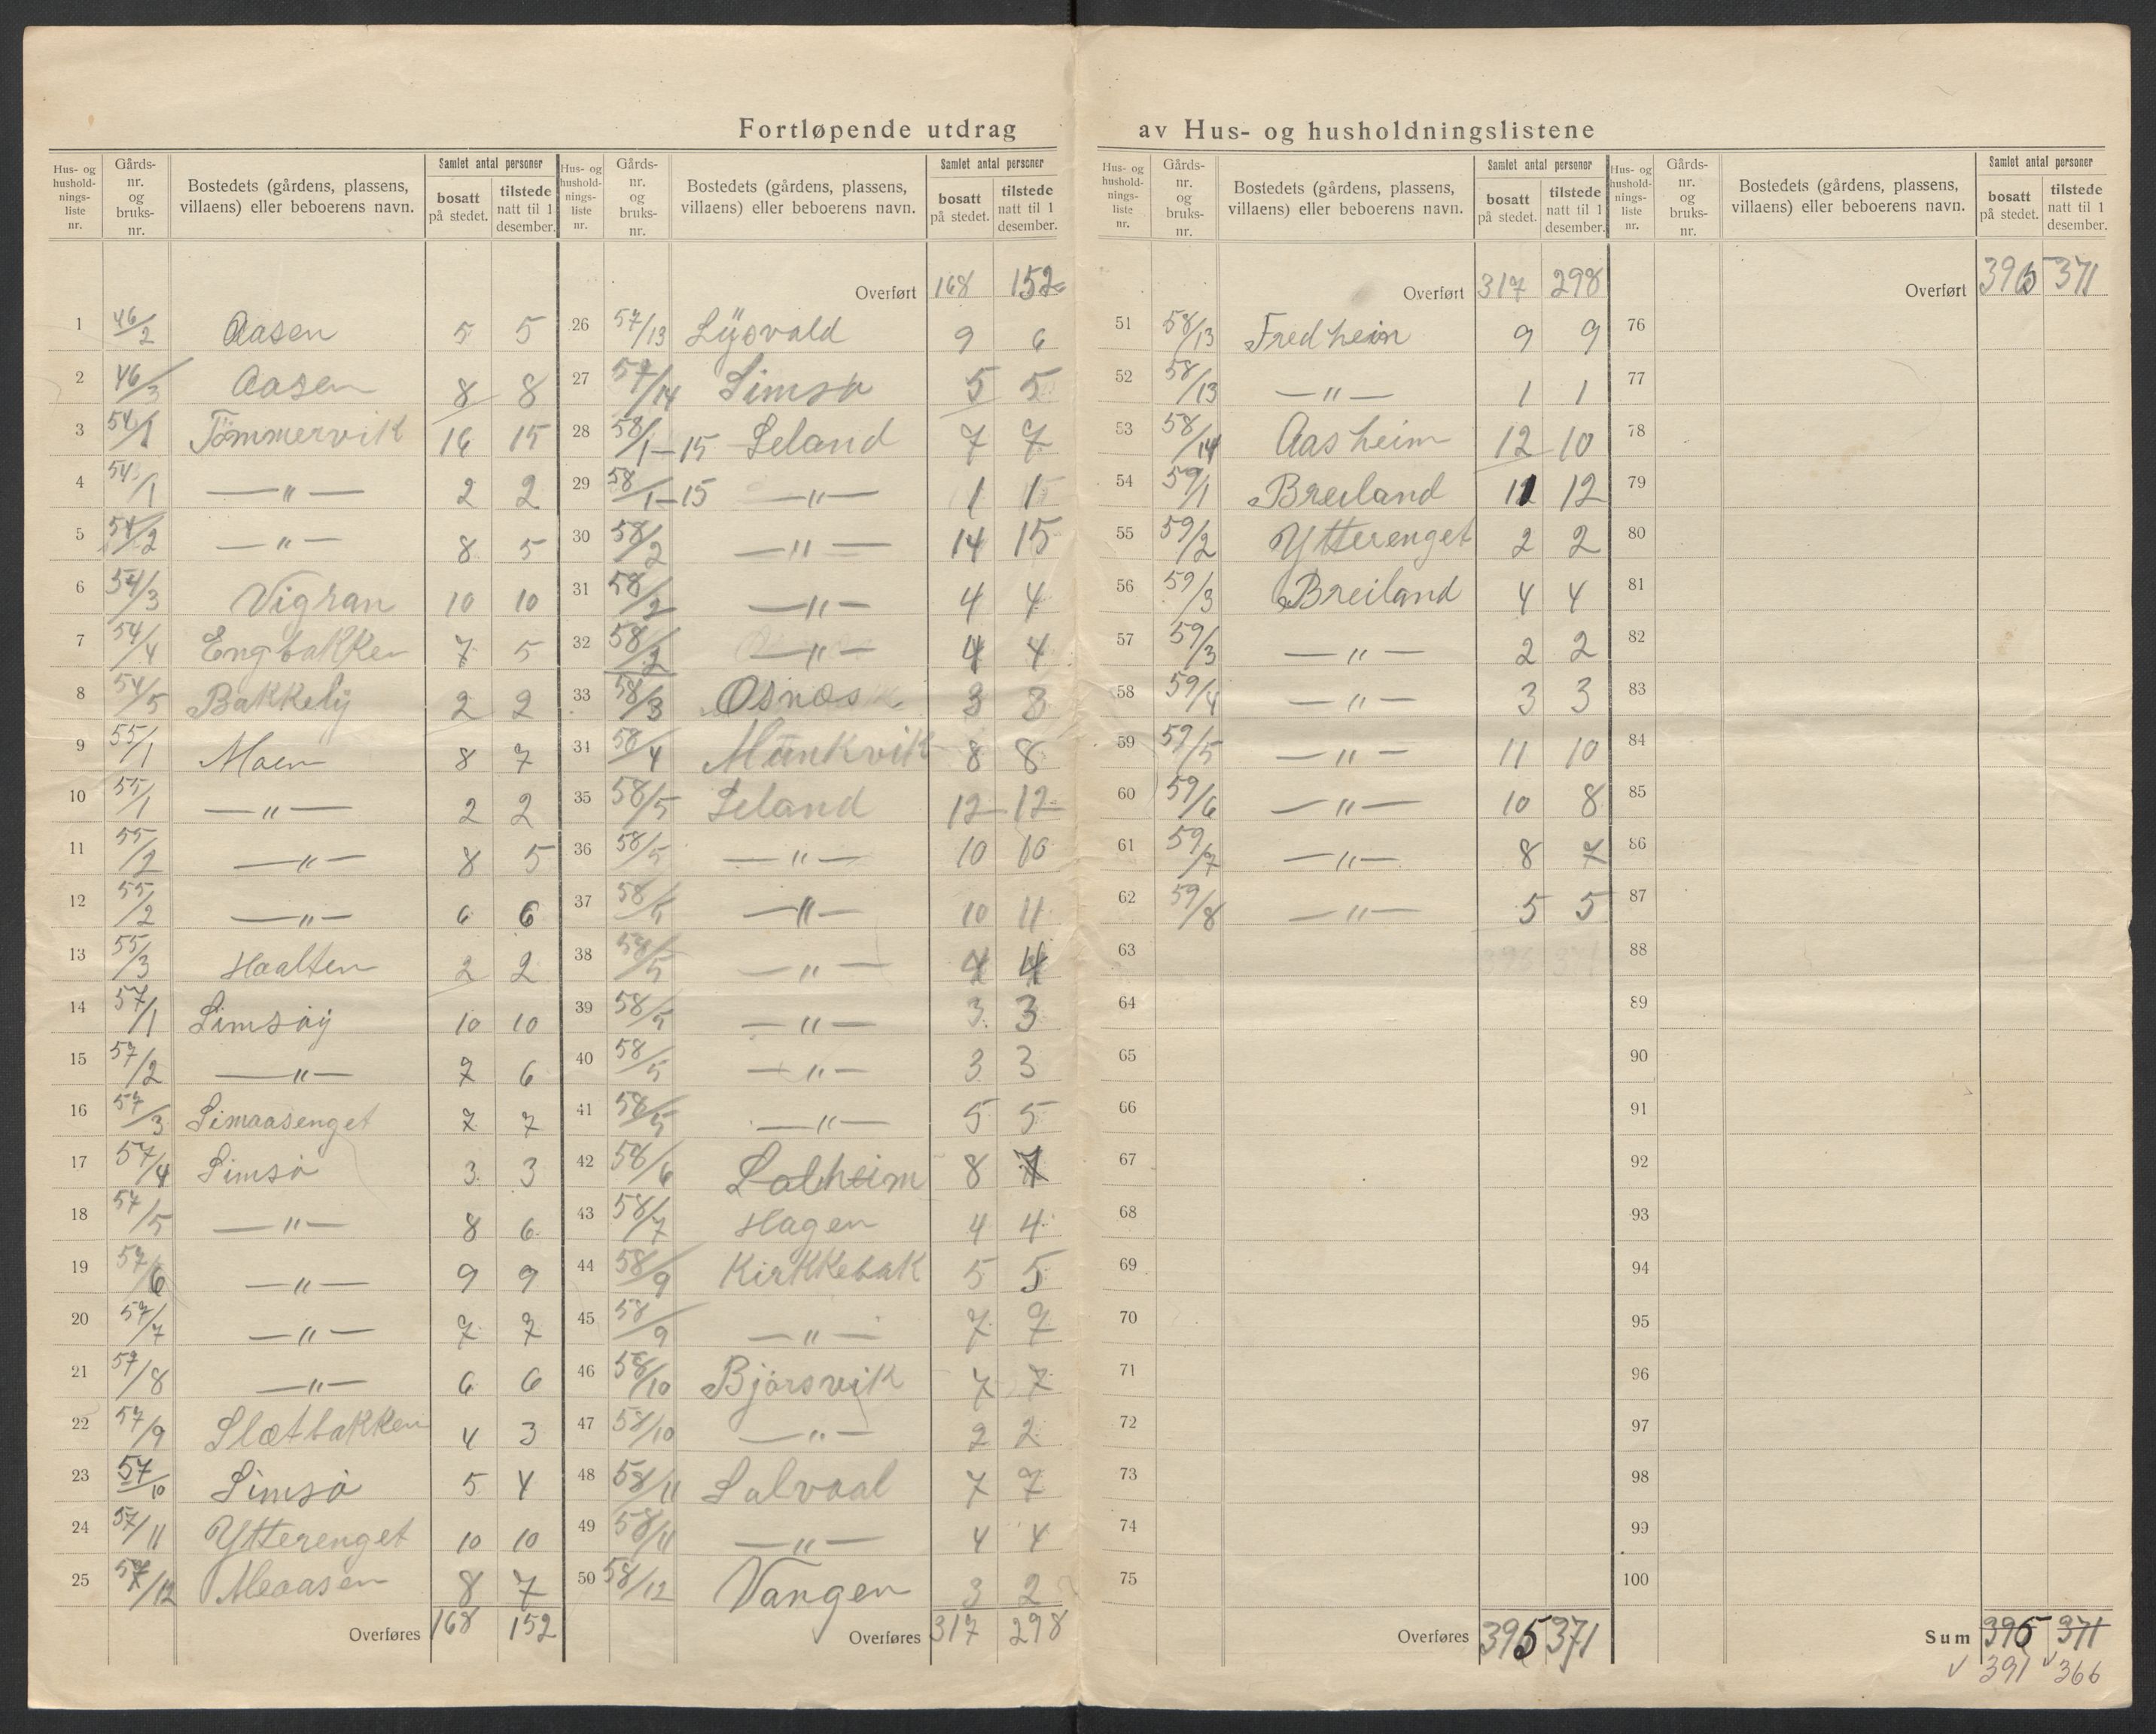 Fortløpende utdrag av Hus- og husholdningslistene
Hus- og hushold-nings-liste nr. | Gårds-nr. og bruks-nr. | Bostedets (gårdens, plassens, villaens) eller beboerens navn. | Samlet antal personer | bosatt på stedet. | tilstede natt til 1 desember.
1 46/2 Aasen 5 5
2 46/3 Aasen 8 8
3 54/1 Tömmervik 16 15
4 54/1 —"— 2 2
5 54/2 —"— 8 5
6 54/3 Vigran 10 10
7 54/4 Engbakken 7 5
8 54/5 Bakkely 2 2
9 55/1 Moen 8 7
10 55/1 —"— 2 2
11 55/2 —"— 8 5
12 55/2 —"— 6 6
13 55/3 Haalten 2 2
14 57/1 Simsöy 10 10
15 57/2 —"— 7 6
16 57/3 Simaasenget 7 7
17 57/4 Simsö 3 3
18 57/5 —"— 8 6
19 57/6 —"— 9 9
20 57/7 —"— 7 7
21 57/8 —"— 6 6
22 57/9 Slætbakken 4 3
23 57/10 Simsö 5 4
24 57/11 Ytterenget 10 10
25 57/12 Meaasen 8 7
Overføres 168 152
Hus- og hushold-nings-liste nr. | Gårds-nr. og bruks-nr. | Bostedets (gårdens, plassens, villaens) eller beboerens navn. | Samlet antal personer | bosatt på stedet. | tilstede natt til 1 desember.
Overført 168 152
26 57/13 Lysvold 9 6
27 57/14 Simsö 5 5
28 58/1-15 Leland 7 7
29 58/1-15 —"— 1 1
30 58/2 —"— 14 15
31 58/2 —"— 4 4
32 58/2 —"— 4 4
33 58/3 Osnes 3 3
34 58/4 Munkvik 8 8
35 58/5 Leland 12 12
36 58/5 —"— 10 10
37 58/5 —"— 10 11
38 58/5 —"— 4 4
39 58/5 —"— 3 3
40 58/5 —"— 3 3
41 58/5 —"— 5 5
42 58/6 Solheim 8 7
43 58/7 Hagen 4 4
44 58/9 Kirkkebak 5 5
45 58/9 —"— 7 7
46 58/10 Bjørsvik 7 7
47 58/10 —"— 2 2
48 58/11 Solvaal 7 7
49 58/11 —"— 4 4
50 58/12 Vangen 3 2
Overføres 317 298
Hus- og hushold-nings-liste nr. | Gårds-nr. og bruks-nr. | Bostedets (gårdens, plassens, villaens) eller beboerens navn. | Samlet antal personer | bosatt på stedet. | tilstede natt til 1 desember.
Overført 317 298
51 58/13 Fredheim 9 9
52 58/13 —"— 1 1
53 58/14 Aasheim 12 10
54 59/1 Breiland 11 12
55 59/2 Ytterenget 2 2
56 59/3 Breiland 4 4
57 59/3 —"— 2 2
58 59/4 —"— 3 3
59 59/5 —"— 11 10
60 59/6 —"— 10 8
61 59/7 —"— 8 7
62 59/8 —"— 5 5
63
64
65
66
67
68
69
70
71
72
73
74
75
Overføres 395 371
Hus- og hushold-nings-liste nr. | Gårds-nr. og bruks-nr. | Bostedets (gårdens, plassens, villaens) eller beboerens navn. | Samlet antal personer | bosatt på stedet. | tilstede natt til 1 desember.
Overført 395 371
76
77
78
79
80
81
82
83
84
85
86
87
88
89
90
91
92
93
94
95
96
97
98
99
100
Sum 395 371
√ 391 √ 366